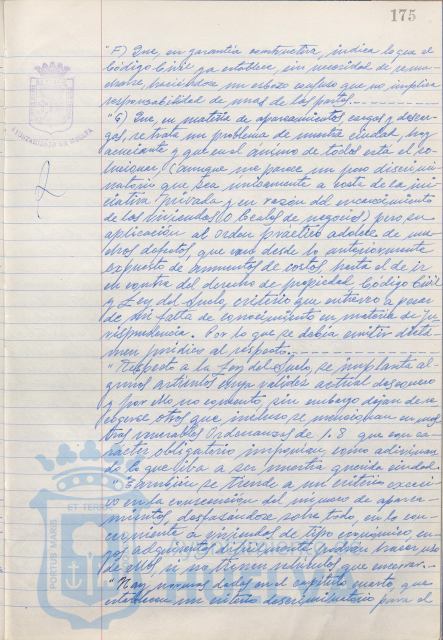 175
"F) Que, en garantía constructiva, indica lo que el
Código Civil ya establece, sin necesidad de
haciéndose un esbozo confuso que no implica
responsabilidad de una de las partes.
"G) Que, en materia de aparcamientos cargas y descar-
gas, se trata un problema de nuestra ciudad, hoy
acuciante y que en el ánimo de todos está el so-
lucionar (aunque me parece un poco discrimi-
natorio que sea únicamente a costa de la ini-
ciativa privada y en razón del encarecimiento
de las viviendas o locales de negocios) pero, su
aplicación al orden práctico adolece de nu-
defectos, que van desde lo anteriormente
expuesto de aumentos de costos, hasta el de ir
en contra del derecho de propiedad, Código Civil
y Ley del Suelo, criterio que entiendo a pesar
de mi falta de conocimiento en materia de ju-
risprudencia. Por lo que se debía emitir dicta-
men jurídico al respecto.
"Respecto a la Ley del Suelo, se implanta al-
gunos artículos cuya validez actual desconozco
y por ello no comento, sin embargo dejan de re-
cogerse otros que incluso se mencionan en nues-
tras venerables Ordenanzas de 1.8 que con ca-
rácter obligatorio imponían, como adivinan-
do lo que iba a ser nuestra querida ciudad.
"También se tiende a un criterio excesi-
vo en la concreción del número de aparca-
mientos desfasándose sobre todo, en lo con-
cerniente a viviendas de tipo económico, cu-
yos adquirentes difícilmente podrán hacer uso
de ellos si no tienen vehículos que encerrar.
"Hay normas dadas en el capítulo cuarto que
establecen un criterio discriminatorio para el
PORTUS MARIS
ET TERRE